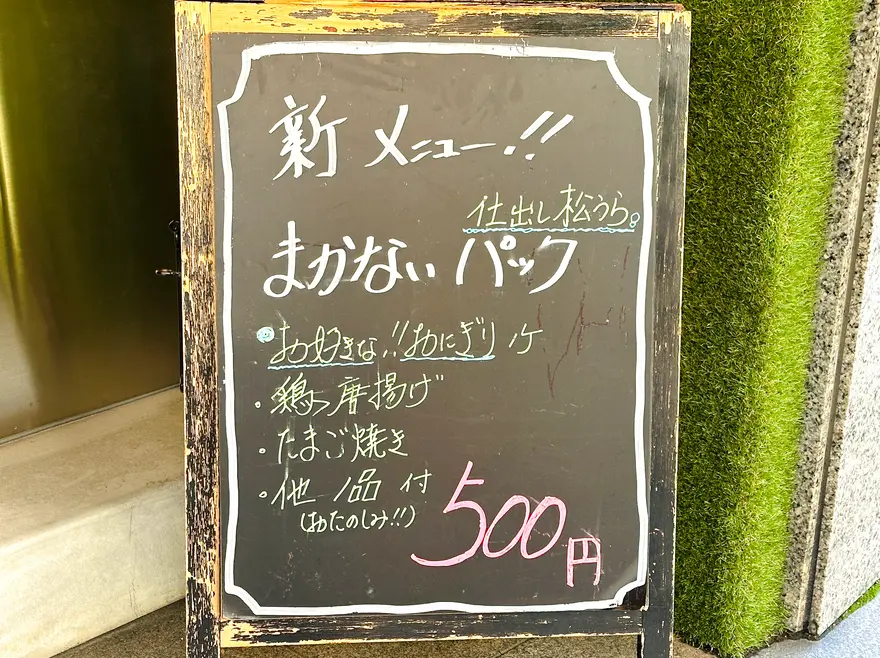 新メニュー!!
仕出し松うら。
まかないパック
・お好きな!!おにぎり1ケ
・鶏の唐揚げ
・たまご焼き
・他1品付
(おたのしみ!!)
500円